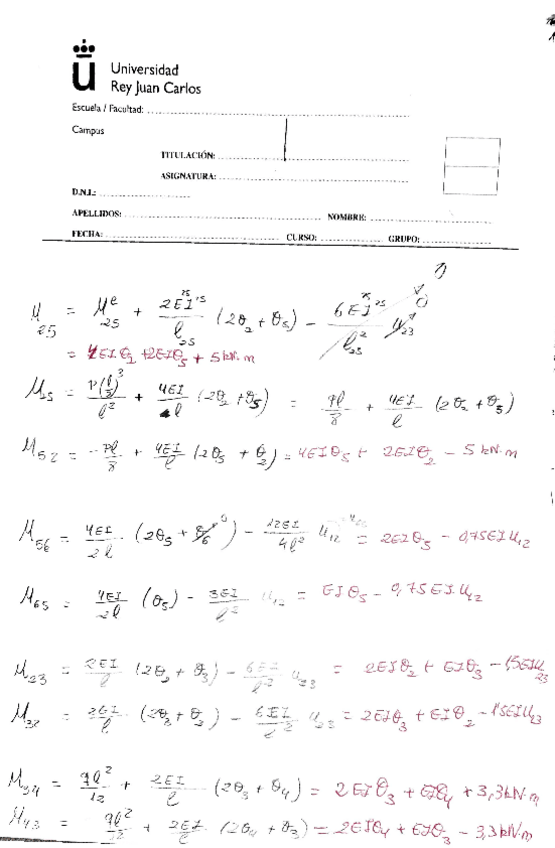 Universidad
Rey Juan Carlos
Escuela / Facultad:
Campus
TITULACIÓN:
ASIGNATURA:
D.N.I.:
APELLIDOS: NOMBRE:
FECHA: CURSO: GRUPO:
M₂₅ = Mᵉ₂₅ + 2EI²⁵/l₂₅ (2θ₂ + θ₅) - 6EI²⁵/l²₂₅ u₂₃ 0
= 4EIθ₂ + 2EIθ₅ + 5 kN·m
M₂₅ = P(l/2)³/l² + 4EI/l (2θ₂ + θ₅) = Pl/8 + 4EI/l (2θ₂ + θ₅)
M₅₂ = -Pl/8 + 4EI/l (2θ₅ + θ₂) = 4EIθ₅ + 2EIθ₂ - 5 kN·m
M₅₆ = 4EI/2l (2θ₅ + θ₆ 0) - 12EI/4l² u₁₂ = 2EIθ₅ - 0,75EIu₁₂
M₆₅ = 4EI/2l (θ₅) - 3EI/l² u₁₂ = EIθ₅ - 0,75EIu₁₂
M₂₃ = 2EI/l (2θ₂ + θ₃) - 6EI/l² u₂₃ = 2EIθ₂ + EIθ₃ - 1,5EIu₂₃
M₃₂ = 2EI/l (2θ₃ + θ₂) - 6EI/l² u₂₃ = 2EIθ₃ + EIθ₂ - 1,5EIu₂₃
M₃₄ = ql²/12 + 2EI/l (2θ₃ + θ₄) = 2EIθ₃ + EIθ₄ + 3,3 kN·m
M₄₃ = -ql²/12 + 2EI/l (2θ₄ + θ₃) = 2EIθ₄ + EIθ₃ - 3,3 kN·m